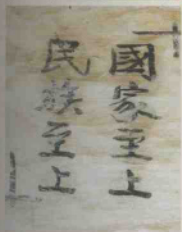 國家至上
民族至上